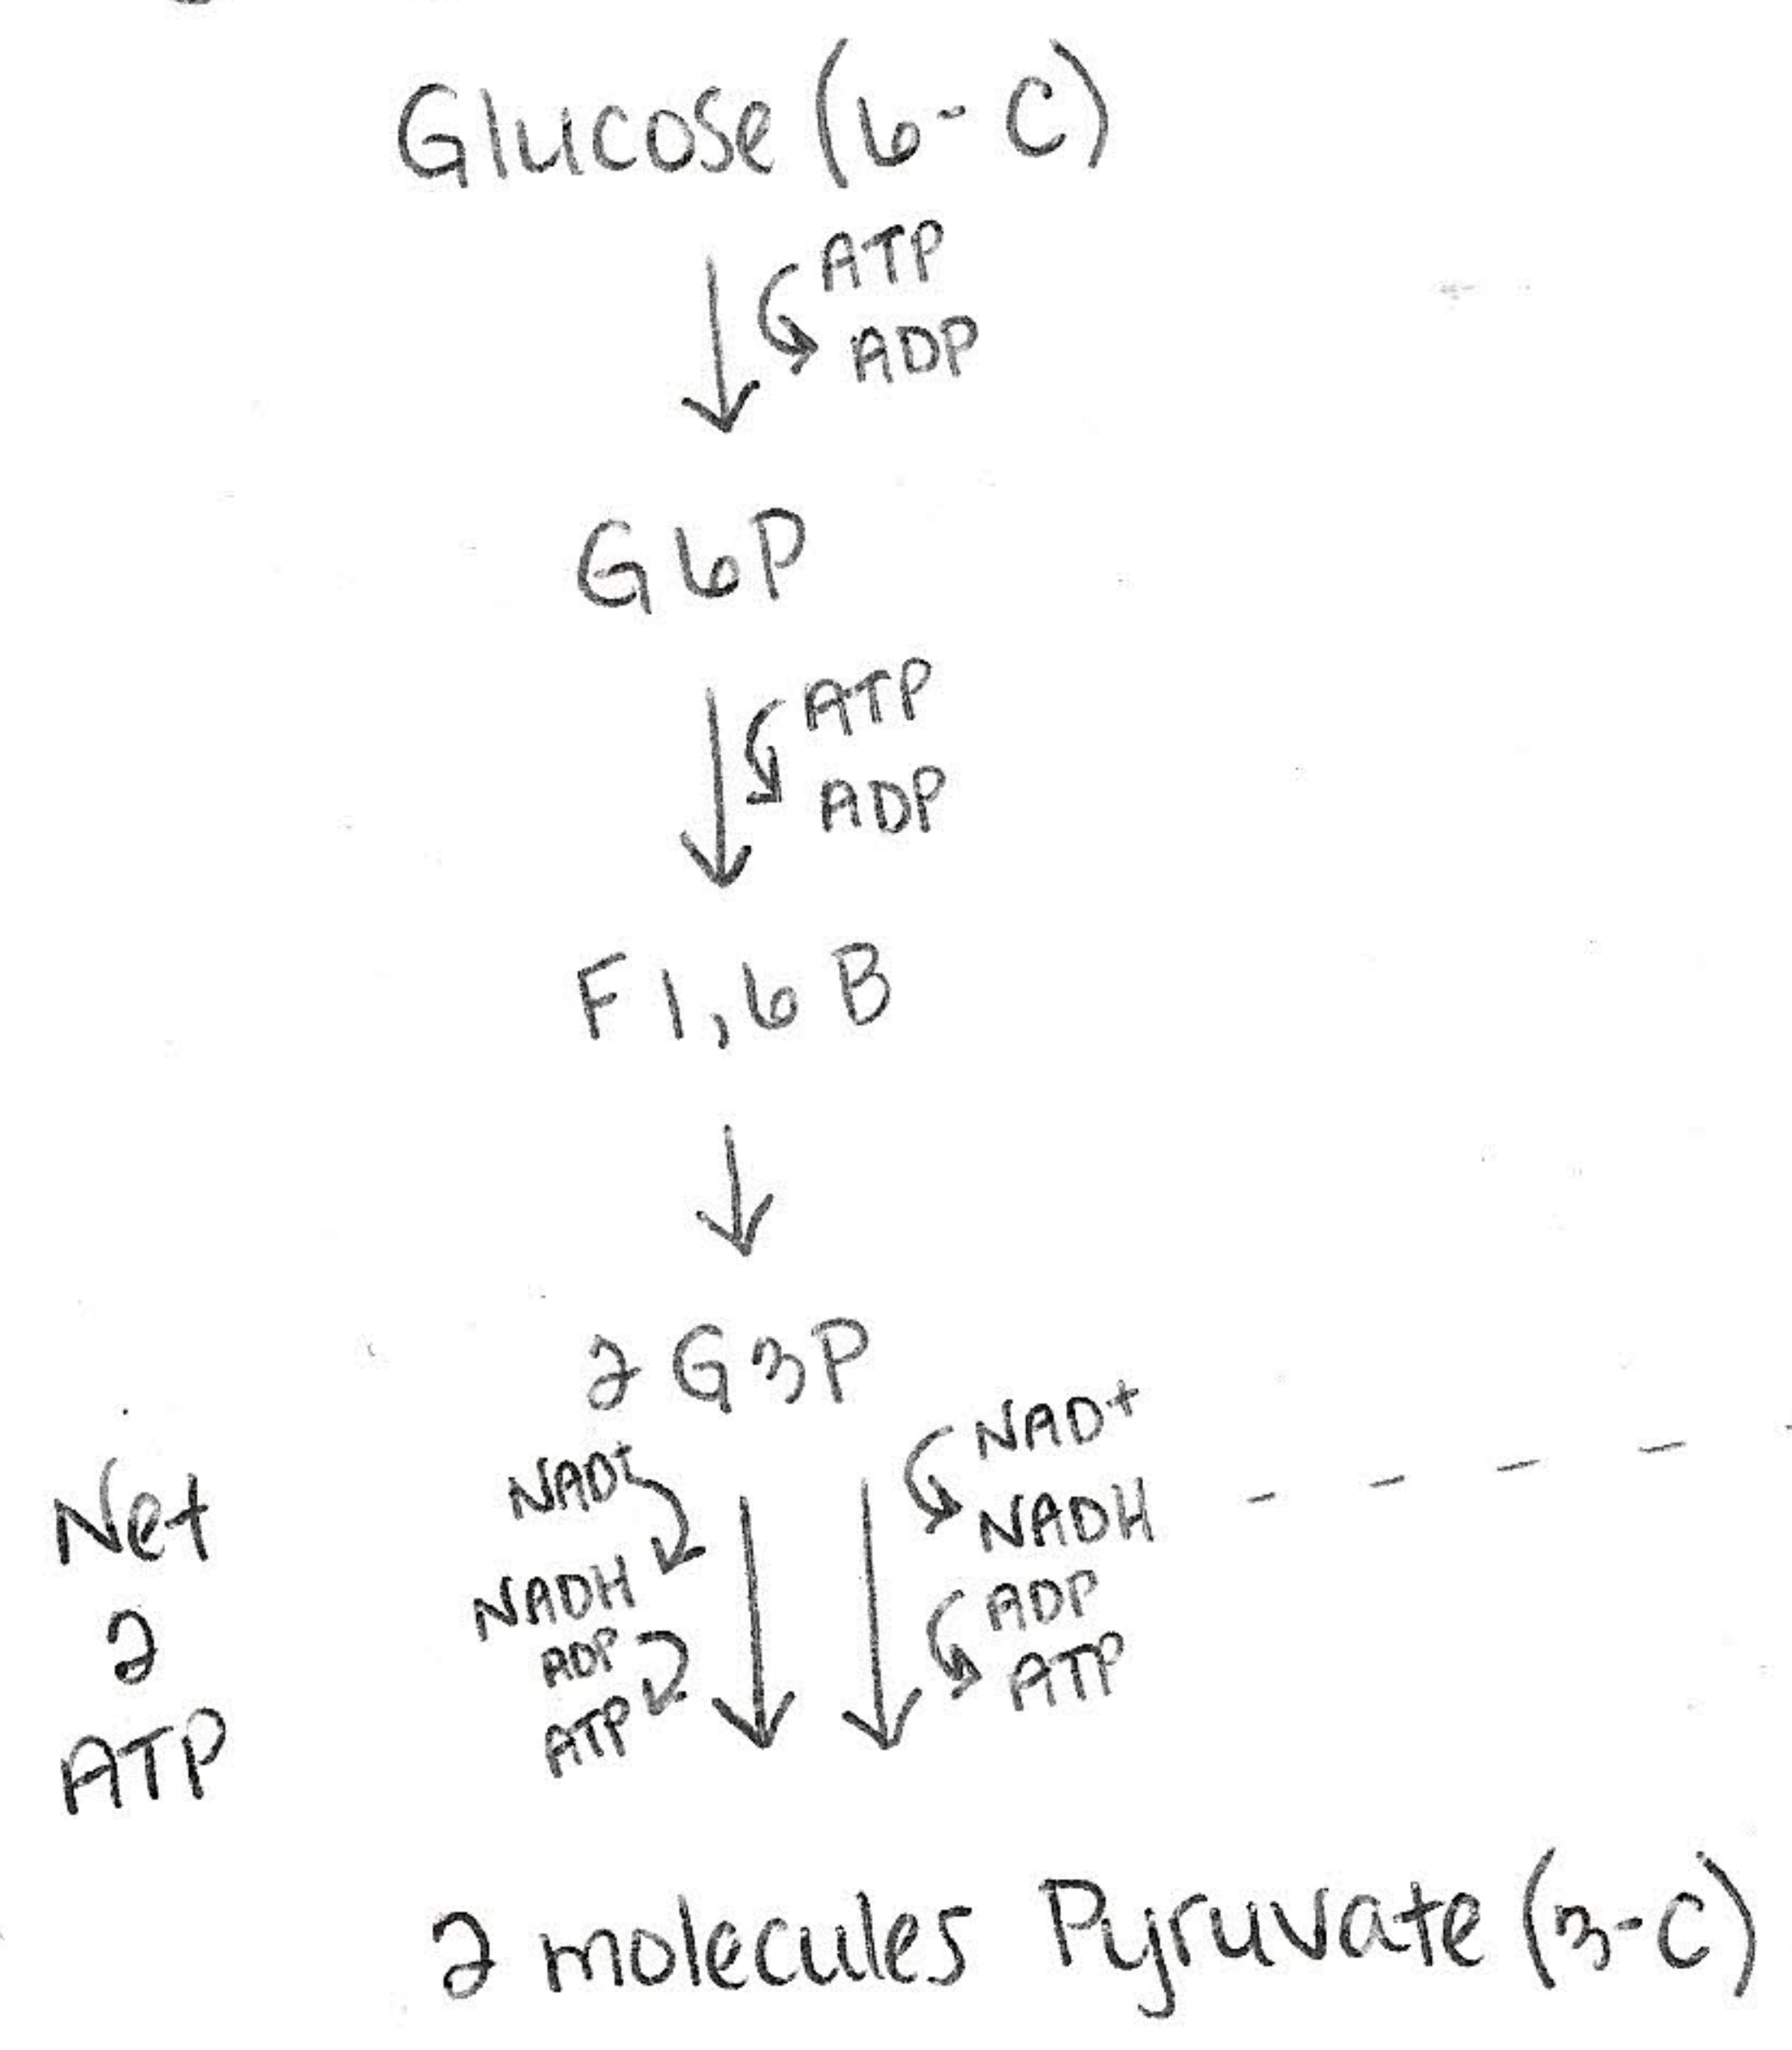 Glucose (6-C)
ATP
ADP
G6P
ATP
ADP
F1,6 B
2 G3P
NAD+
NAD+
NADH
NADH
ADP
ADP
ATP
ATP
Net
2
ATP
2 molecules Pyruvate (3-C)